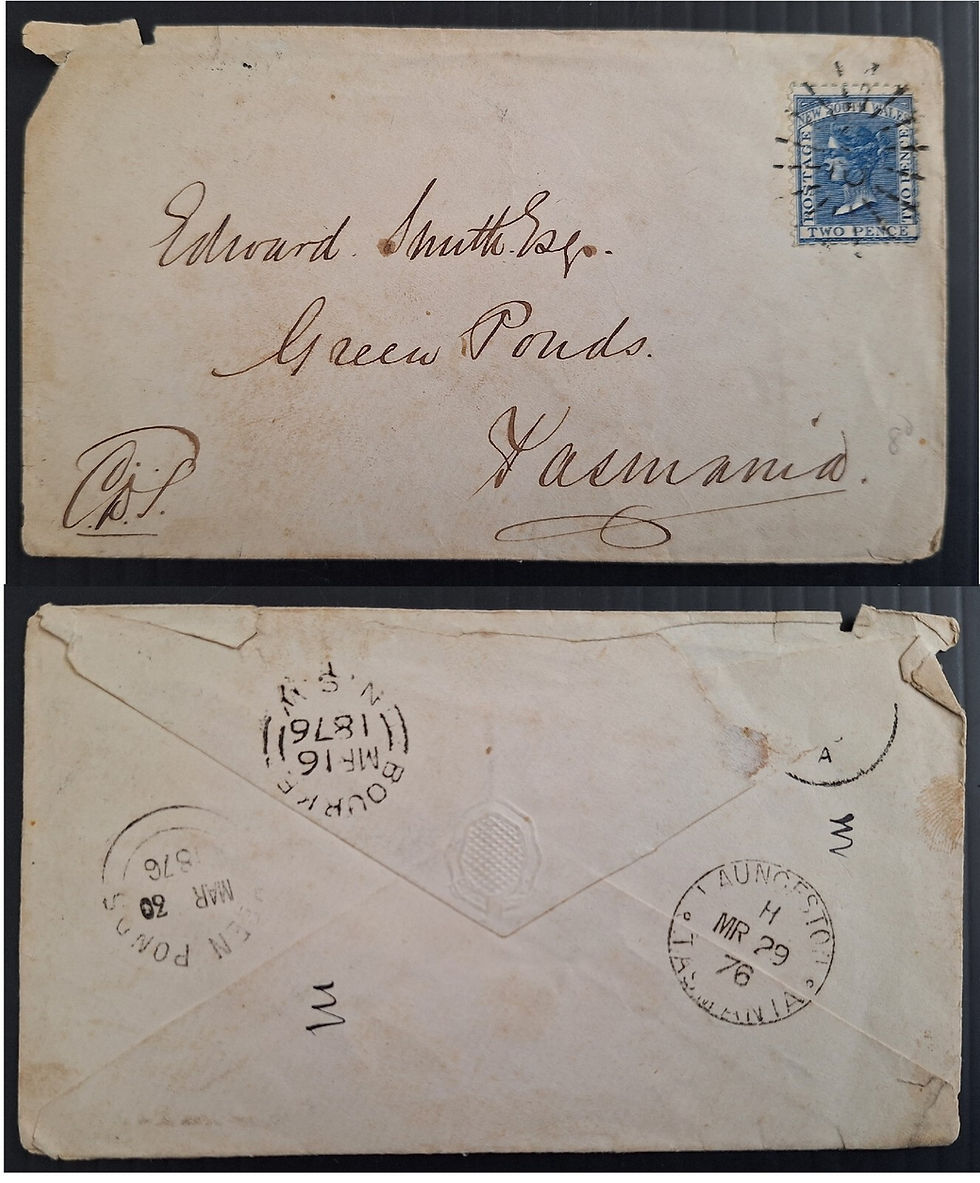 NEW SOUTH WALES
POSTAGE
TWO PENCE
TWO PENCE
Edward Smith Esqr.
Green Ponds.
Tasmania.
N.S.W
1876
MR 16
BOURKE
A
LAUNCESTON
H
MR 29
76
TASMANIA
1876
MAR 30
EEN PONDS